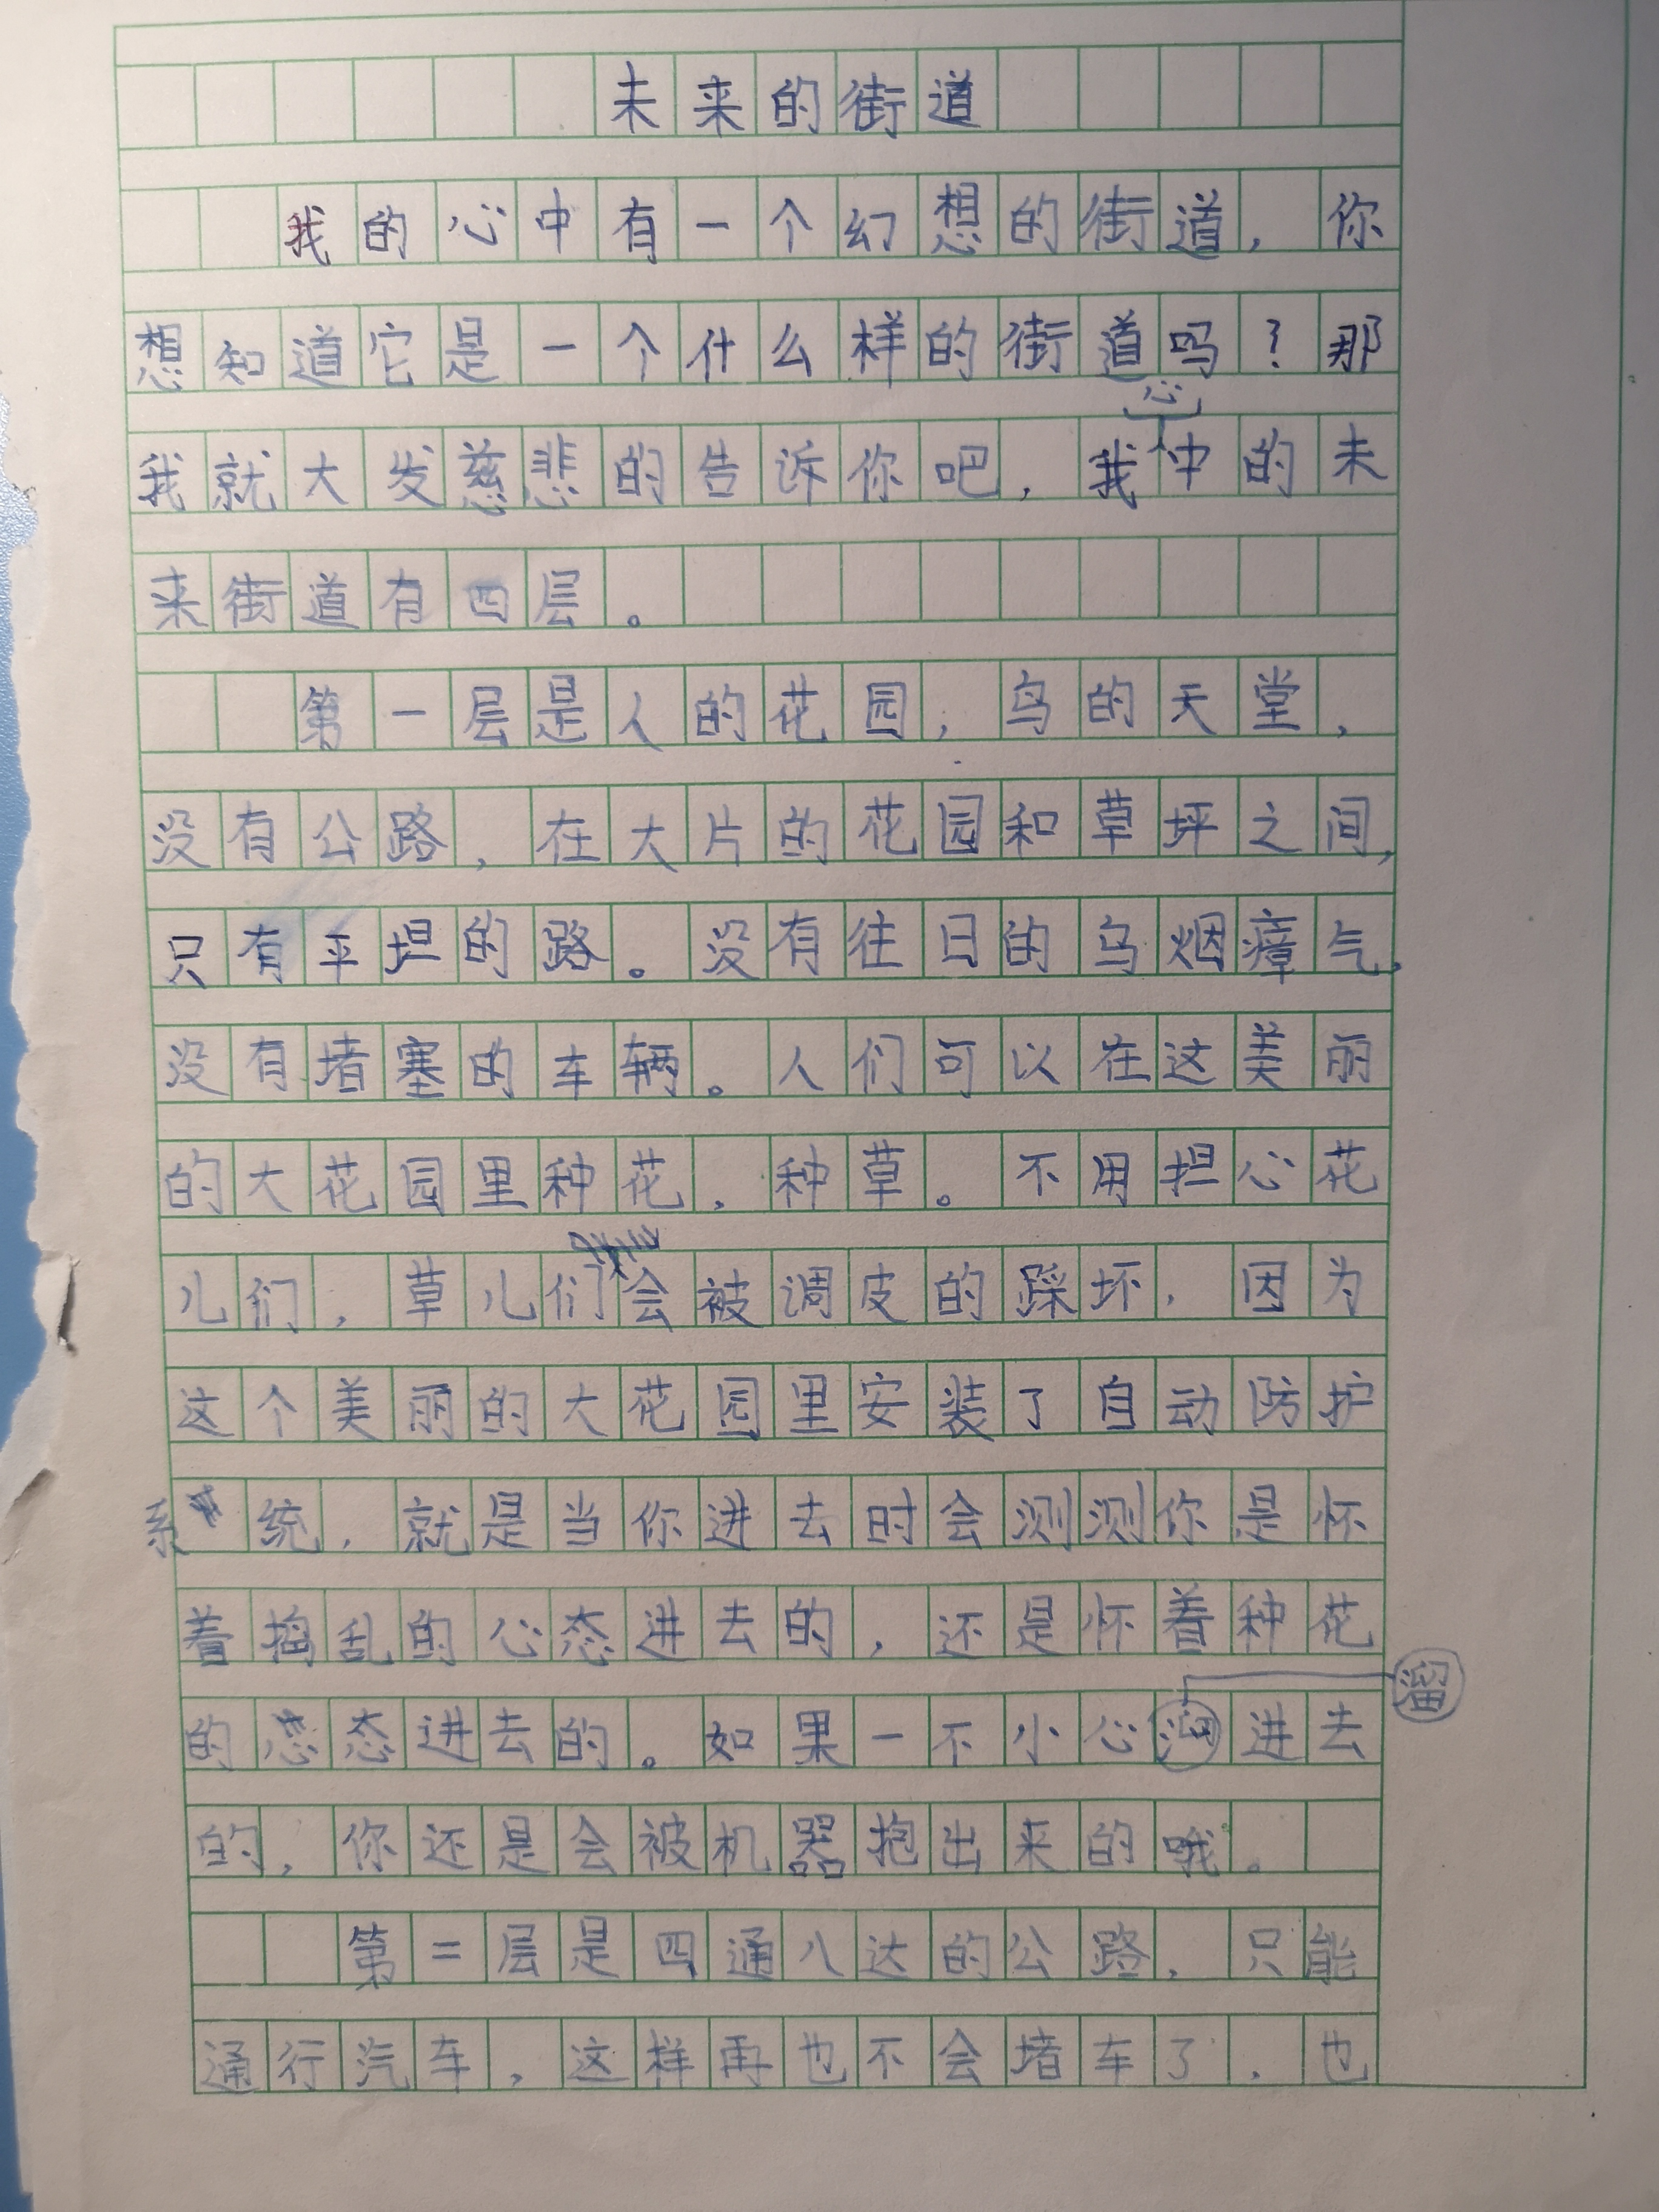 未来的街道
我的心中有一个幻想的街道，你
想知道它是一个什么样的街道吗？那
我就大发慈悲的告诉你吧，我心中的未
来街道有四层。
第一层是人的花园，鸟的天堂，
没有公路，在大片的花园和草坪之间，
只有平坦的路。没有往日的乌烟瘴气，
没有堵塞的车辆。人们可以在这美丽
的大花园里种花，种草。不用担心花
儿们，草儿们会被调皮的踩坏，因为
这个美丽的大花园里安装了自动防护
系统，就是当你进去时会测测你是怀
着捣乱的心态进去的，还是怀着种花
的态进去的。如果一不小心溜进去
的，你还是会被机器抱出来的哦。
第二层是四通八达的公路，只能
通行汽车，这样再也不会堵车了，也